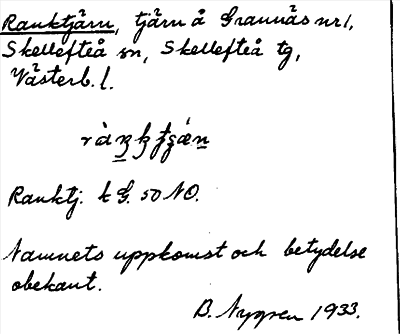 Ranktjärn, tjärn å Grannäs nr 1,
Skellefteå sn, Skellefteå tg,
Västerb. l.
Ranktj: k G. 50 NO.
Namnets uppkomst och betydelse
obekant.
B. Nygren 1933.